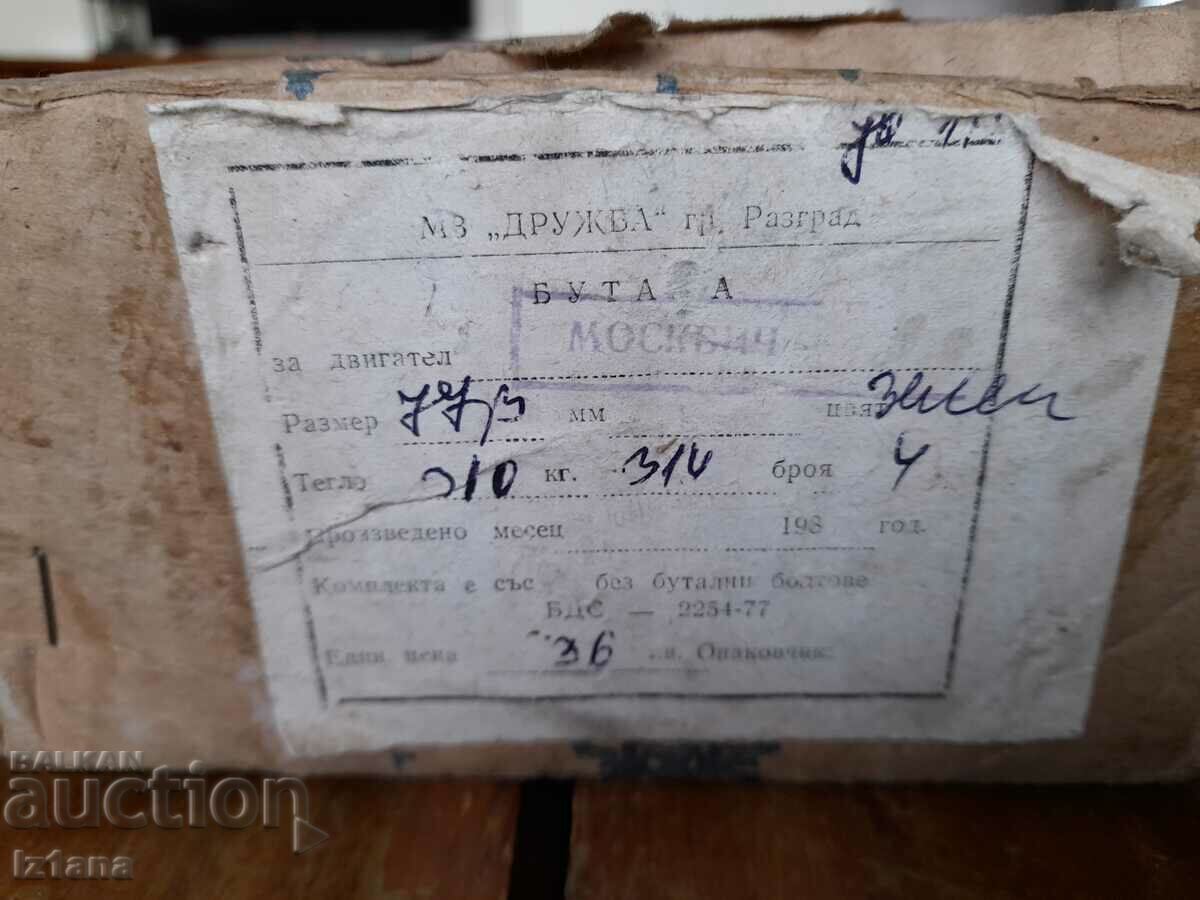 МЗ „ДРУЖБА“ гр. Разград
БУТАЛА
МОСКВИЧ
за двигател
Размер мм цвят зелен
Тегло 310 кг. 314 броя 4
Произведено месец 198 год.
Комплекта е със без бутални болтове
БДС — 2254-77
Един. цена 36 Опаковчик:
BALKAN
auction
iz1ana